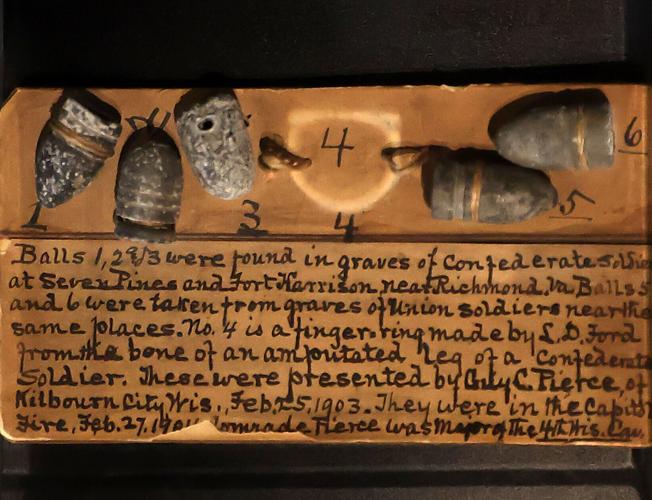 1 2 3 4 5 6
4
Balls 1, 2 & 3 were found in graves of Confederate Soldie
at Seven Pines and Fort Harrison near Richmond, Va. Balls 5
and 6 were taken from graves of Union soldiers near the
same places. No. 4 is a finger-ring made by L.D. Ford
from the bone of an amputated leg of a Confederate
Soldier. These were presented by Guy C. Pierce, of
Kilbourn City, Wis., Feb. 25, 1903. They were in the Capitol
Fire, Feb. 27, 190 Comrade Pierce was Major of The 4th Wis. Cav.